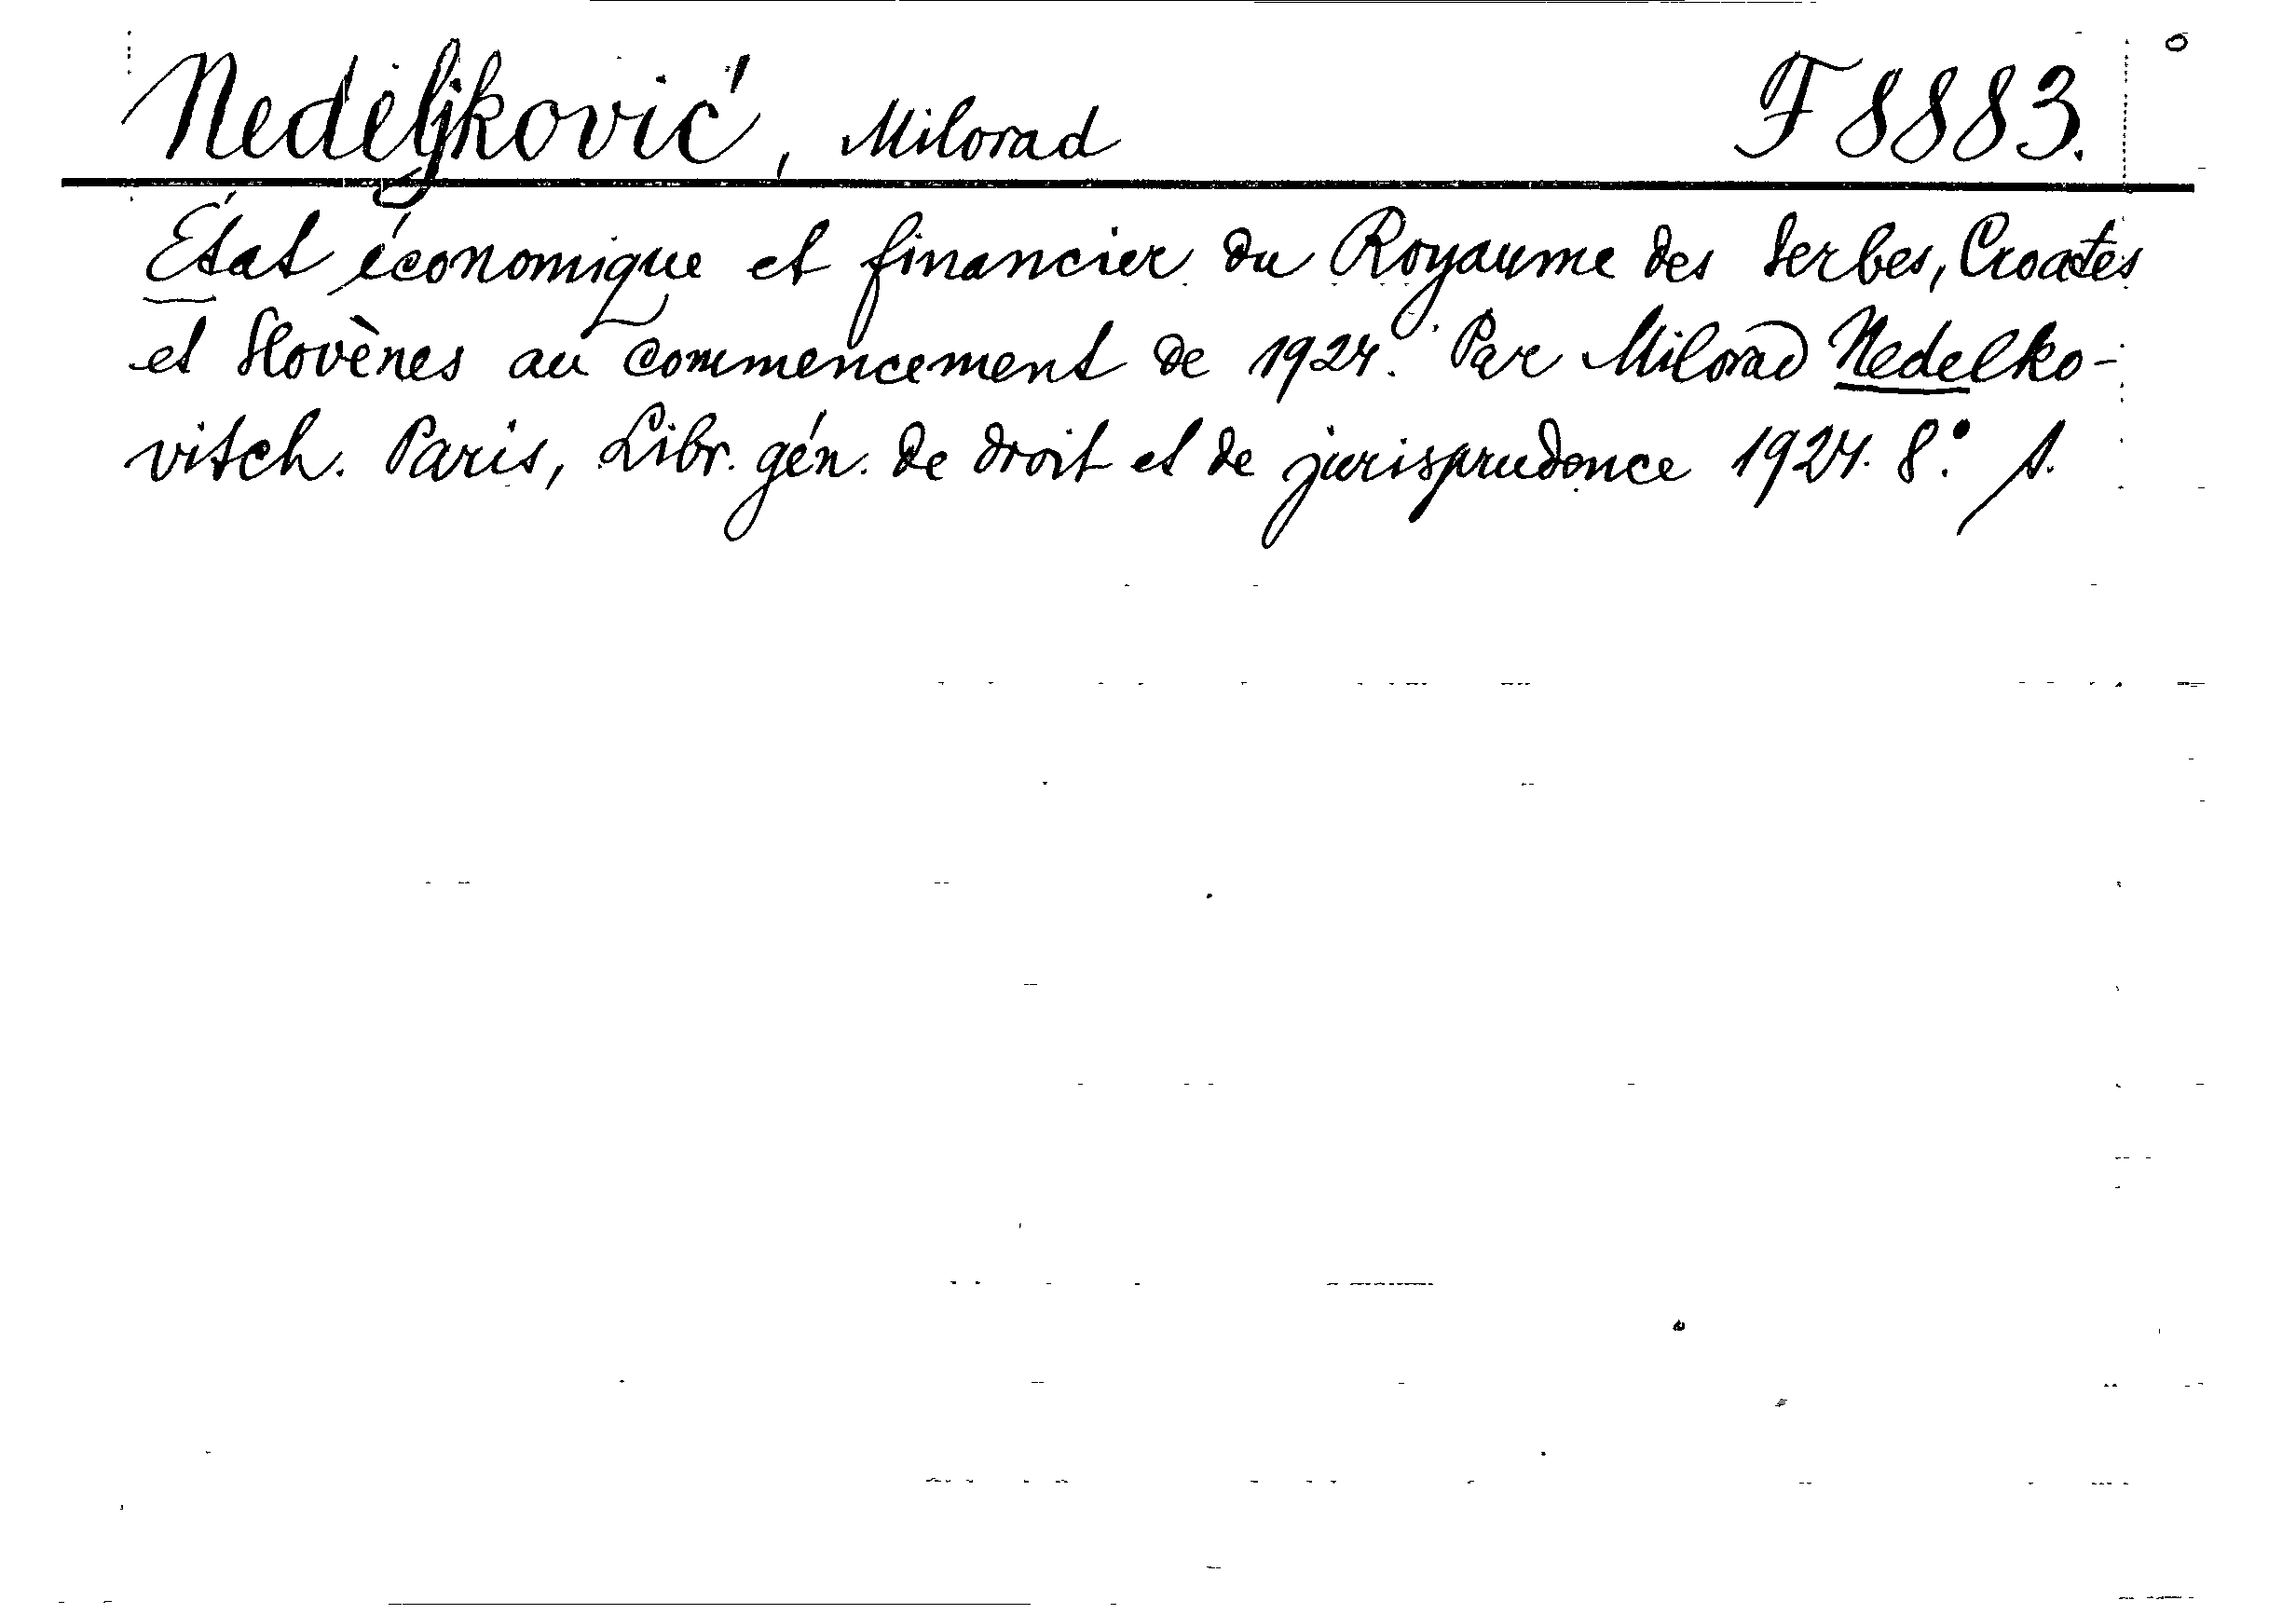 Nedeljković, Milorad F 8883.
État économique et financier du Royaume des Serbes, Croates
et Slovènes au commencement de 1924. Par Milorad Nedelko-
vitch. Paris, Libr. gén. de droit et de jurisprudence 1924. 8°.